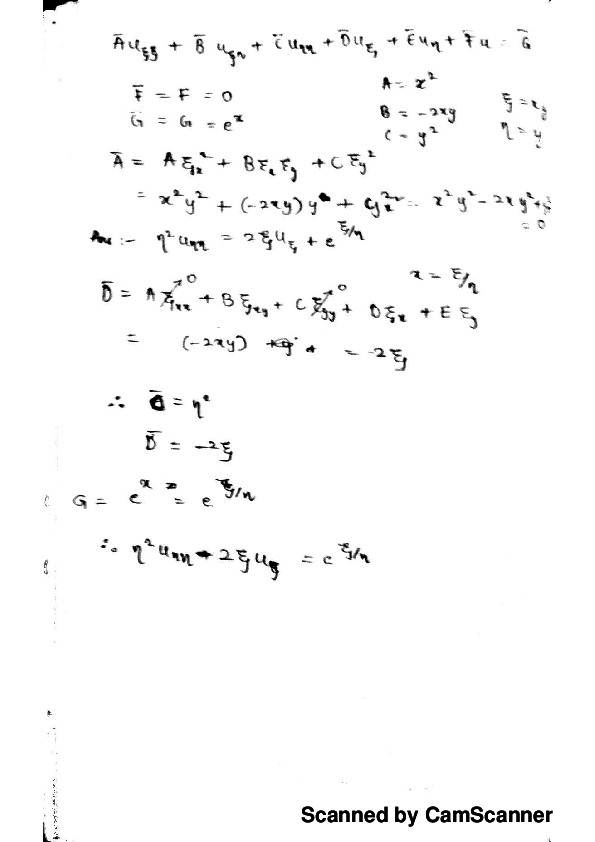 Āu_ξξ + B̄ u_ξη + C̄u_ηη + D̄u_ξ + Ēu_η + F̄u = Ḡ
F̄ = F = 0
A = x²
Ḡ = G = eˣ
B = -2xy
ξ = xy
C = y²
η = y
Ā = Aξ_x² + Bξ_x ξ_y + Cξ_y²
= x²y² + (-2xy)y + y²x² = x²y² - 2xy² +
= 0
Ans :- η²u_ηη = 2ξu_ξ + e^ξ/η
x = ξ/η
D̄ = Aξ_xx⁰ + Bξ_xy + Cξ_yy⁰ + Dξ_x + Eξ_y
= (-2xy) = -2ξ
∴ C̄ = η²
D̄ = -2ξ
G = eˣ = e^ξ/η
∴ η²u_ηη - 2ξu_ξ = e^ξ/η
Scanned by CamScanner